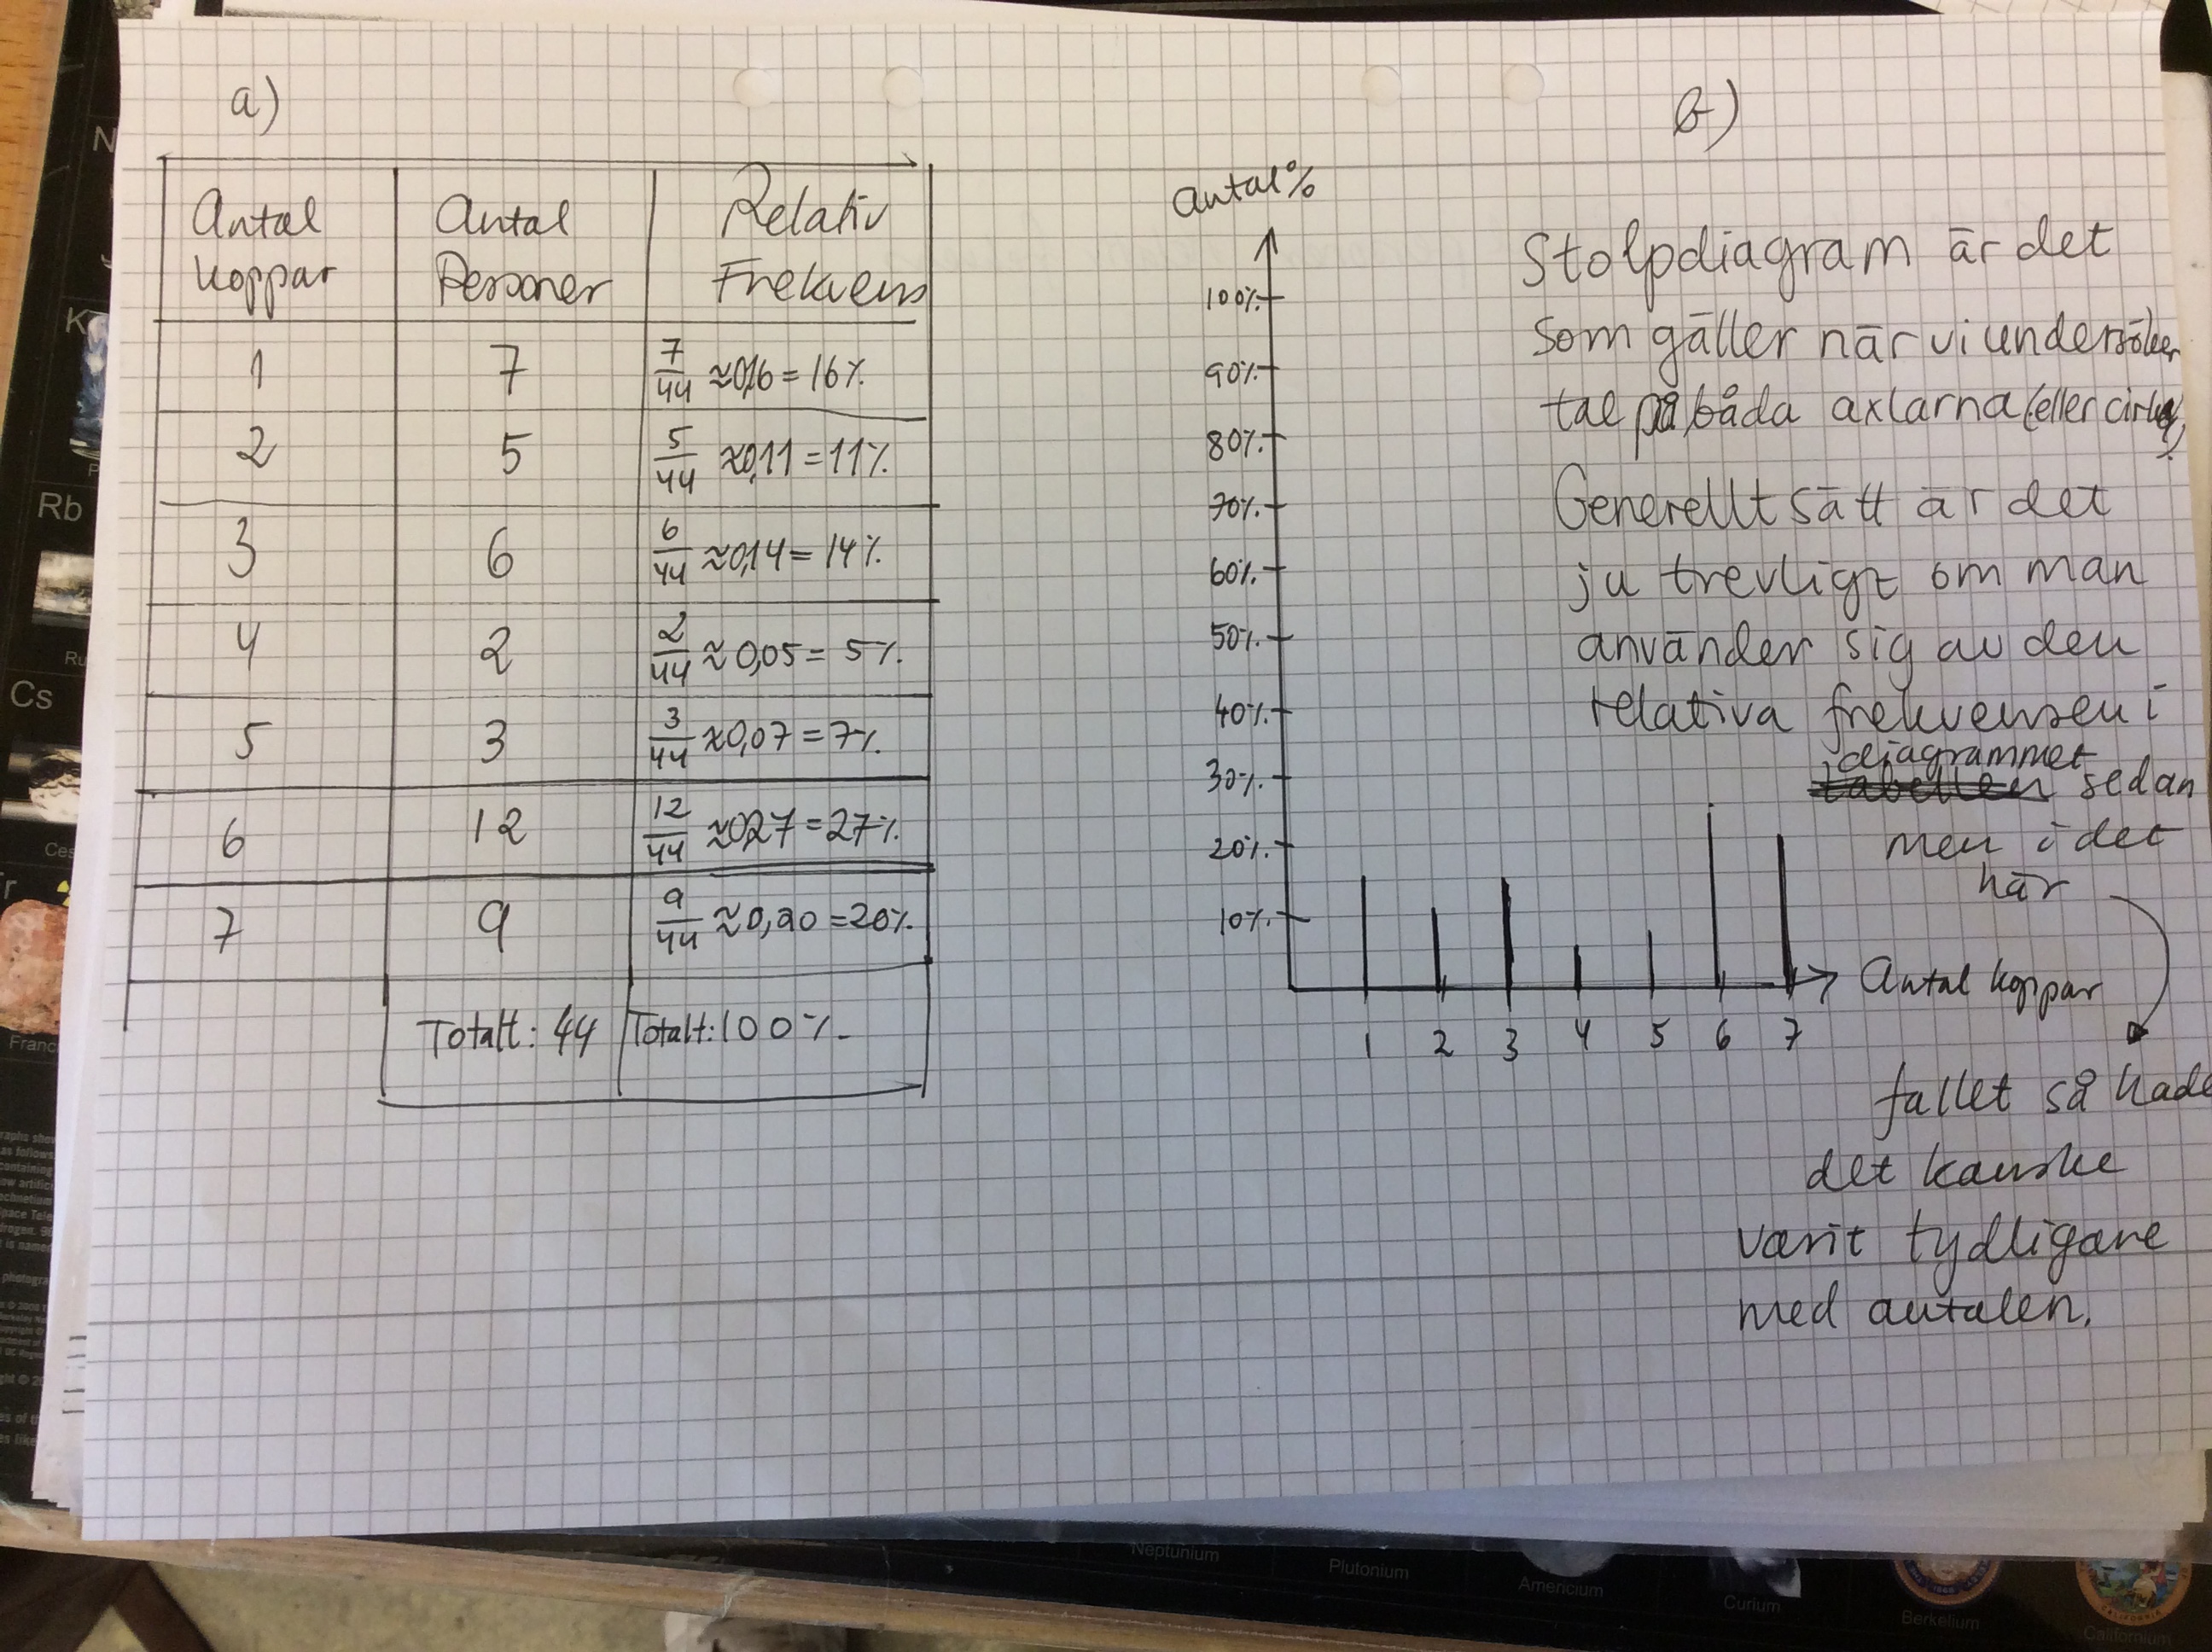 a)
Antal koppar | Antal Personer | Relativ Frekvens
1 | 7 | 7/44 ≈0,16 = 16%
2 | 5 | 5/44 ≈0,11 = 11%
3 | 6 | 6/44 ≈0,14 = 14%
4 | 2 | 2/44 ≈ 0,05 = 5%
5 | 3 | 3/44 ≈0,07 = 7%
6 | 12 | 12/44 ≈0,27 = 27%
7 | 9 | 9/44 ≈0,20 = 20%
Totalt: 44 | Totalt: 100%
antal%
100%
90%
80%
70%
60%
50%
40%
30%
20%
10%
1 2 3 4 5 6 7
Antal koppar
b)
Stolpdiagram är det
som gäller när vi undersöker
tal på båda axlarna (eller
Generellt sätt är det
ju trevligt om man
använder sig av den
relativa frekvensen i
diagrammet
tabellen sedan
men i det
här
fallet så hade
det kanske
varit tydligare
med antalen.
K
Rb
Cs
Ces
Franc
Neptunium
Plutonium
Americium
Curium
Berkelium
Californium